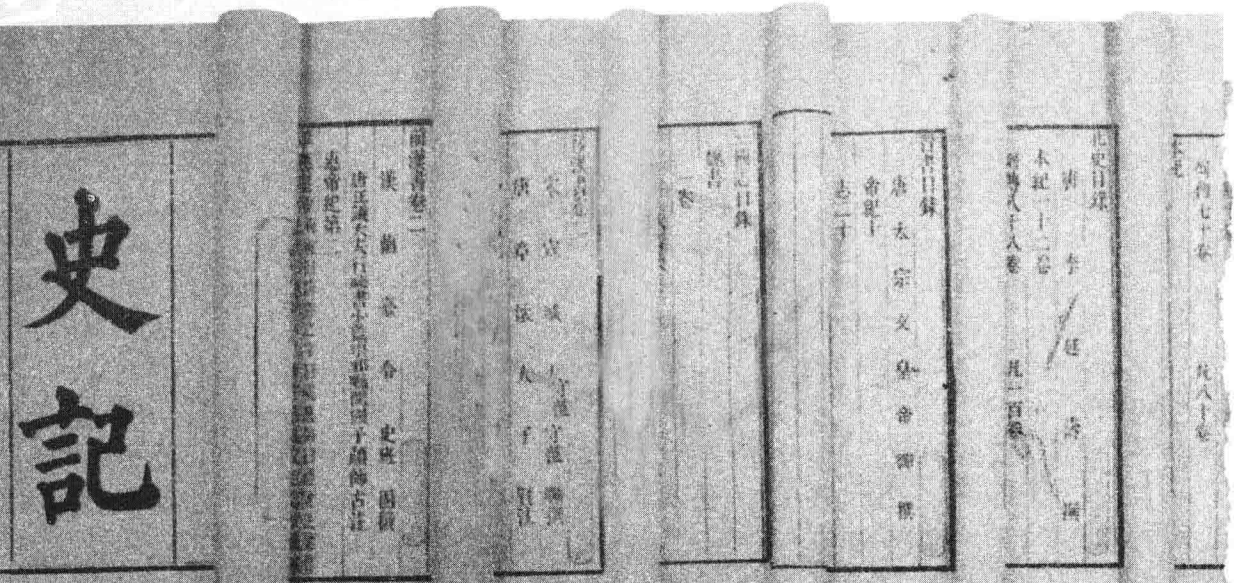 史記
前漢書卷二
漢蘭臺令史班固撰
唐正議大夫行祕書少監琅邪縣開國子顏師古註
惠帝紀第二
宋宣城太守范曄撰
唐章懷太子賢註
目錄
魏書
一卷
晉書目錄
唐太宗文皇帝御撰
帝紀十
志二十
北史目錄
唐李延壽撰
本紀一十二卷
列傳八十八卷 凡一百卷
列傳七十卷 凡八十卷